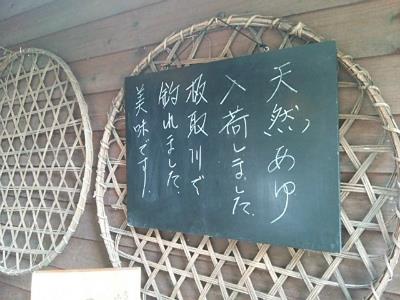 天然あゆ
入荷しました。
板取川で
釣れました。
美味です。